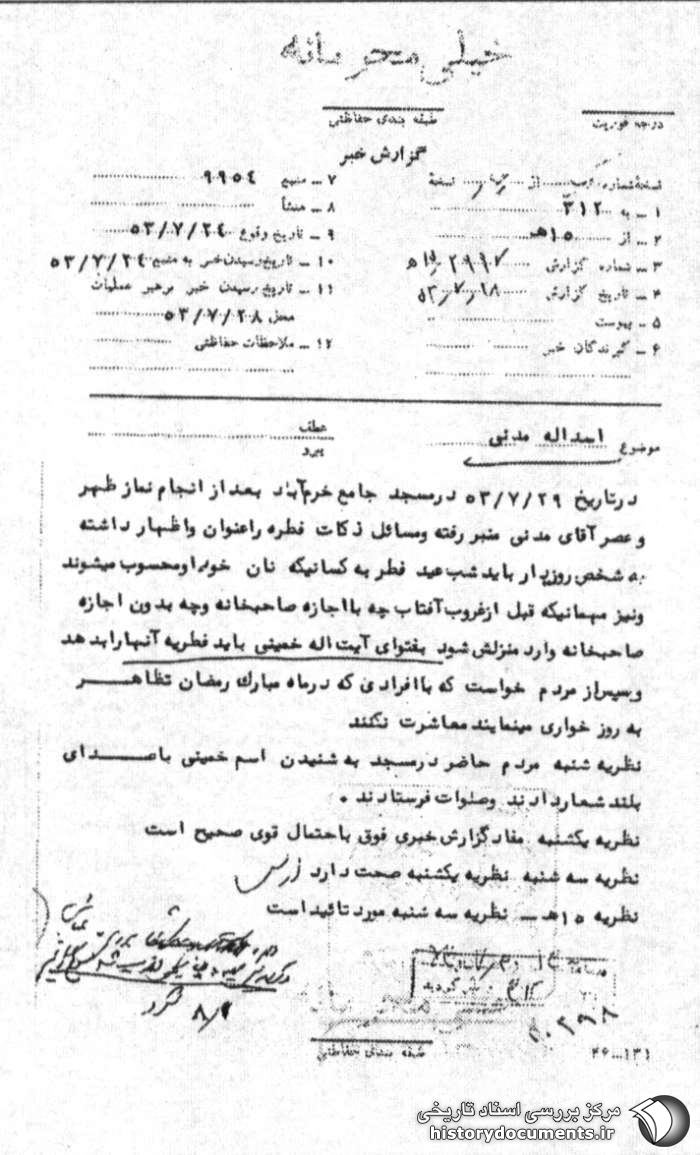 خیلی محرمانه
درجه فوریت
طبقه بندی حفاظتی
گزارش خبر
نسخه شماره از نسخه
۱ ـ به ۳۱۲
۲ ـ از ۱۵هـ
۳ ـ شماره گزارش
۴ ـ تاریخ گزارش
۵ ـ پیوست
۶ ـ گیرندگان خبر
۷ ـ منبع ۹۹۵٤
۸ ـ منشأ
۹ ـ تاریخ وقوع ۵۳/۷/۲٤
۱۰ ـ تاریخ رسیدن خبر به منبع ۵۳/۷/۲٤
۱۱ ـ تاریخ رسیدن خبر برهبر عملیات
محل ۵۳/۷/۲۸
۱۲ ـ ملاحظات حفاظتی
موضوع اسداله مدنی
عطف
پیرو
درتاریخ ۵۳/۷/۲۹ درمسجد جامع خرم‌آباد بعد از انجام نماز ظهر
و عصر آقای مدنی منبر رفته ومسائل ذکات فطره راعنوان واظهار داشته
به شخص روزه‌دار باید شب عید فطر به کسانیکه نان خور او محسوب میشوند
ونیز میهمانیکه قبل ازغروب آفتاب چه با اجازه صاحبخانه وچه بدون اجازه
صاحبخانه وارد منزلش شود بفتوای آیت اله خمینی باید فطریه آنها را بدهد
وسپس از مردم خواست که با افرادی که درماه مبارك رمضان تظاهر
به روز خواری مینمایند معاشرت نکنند
نظریه شنبه مردم حاضر درمسجد به شنیدن اسم خمینی با صدای
بلند شعار دادند وصلوات فرستادند .
نظریه یکشنبه مفاد گزارش خبری فوق باحتمال قوی صحیح است
نظریه سه شنبه نظریه یکشنبه صحت دارد
نظریه ۱۵هـ ـ نظریه سه شنبه مورد تائید است
طبقه بندی حفاظتی
۴۶-۱۳۱
مرکز بررسی اسناد تاریخی
historydocuments.ir